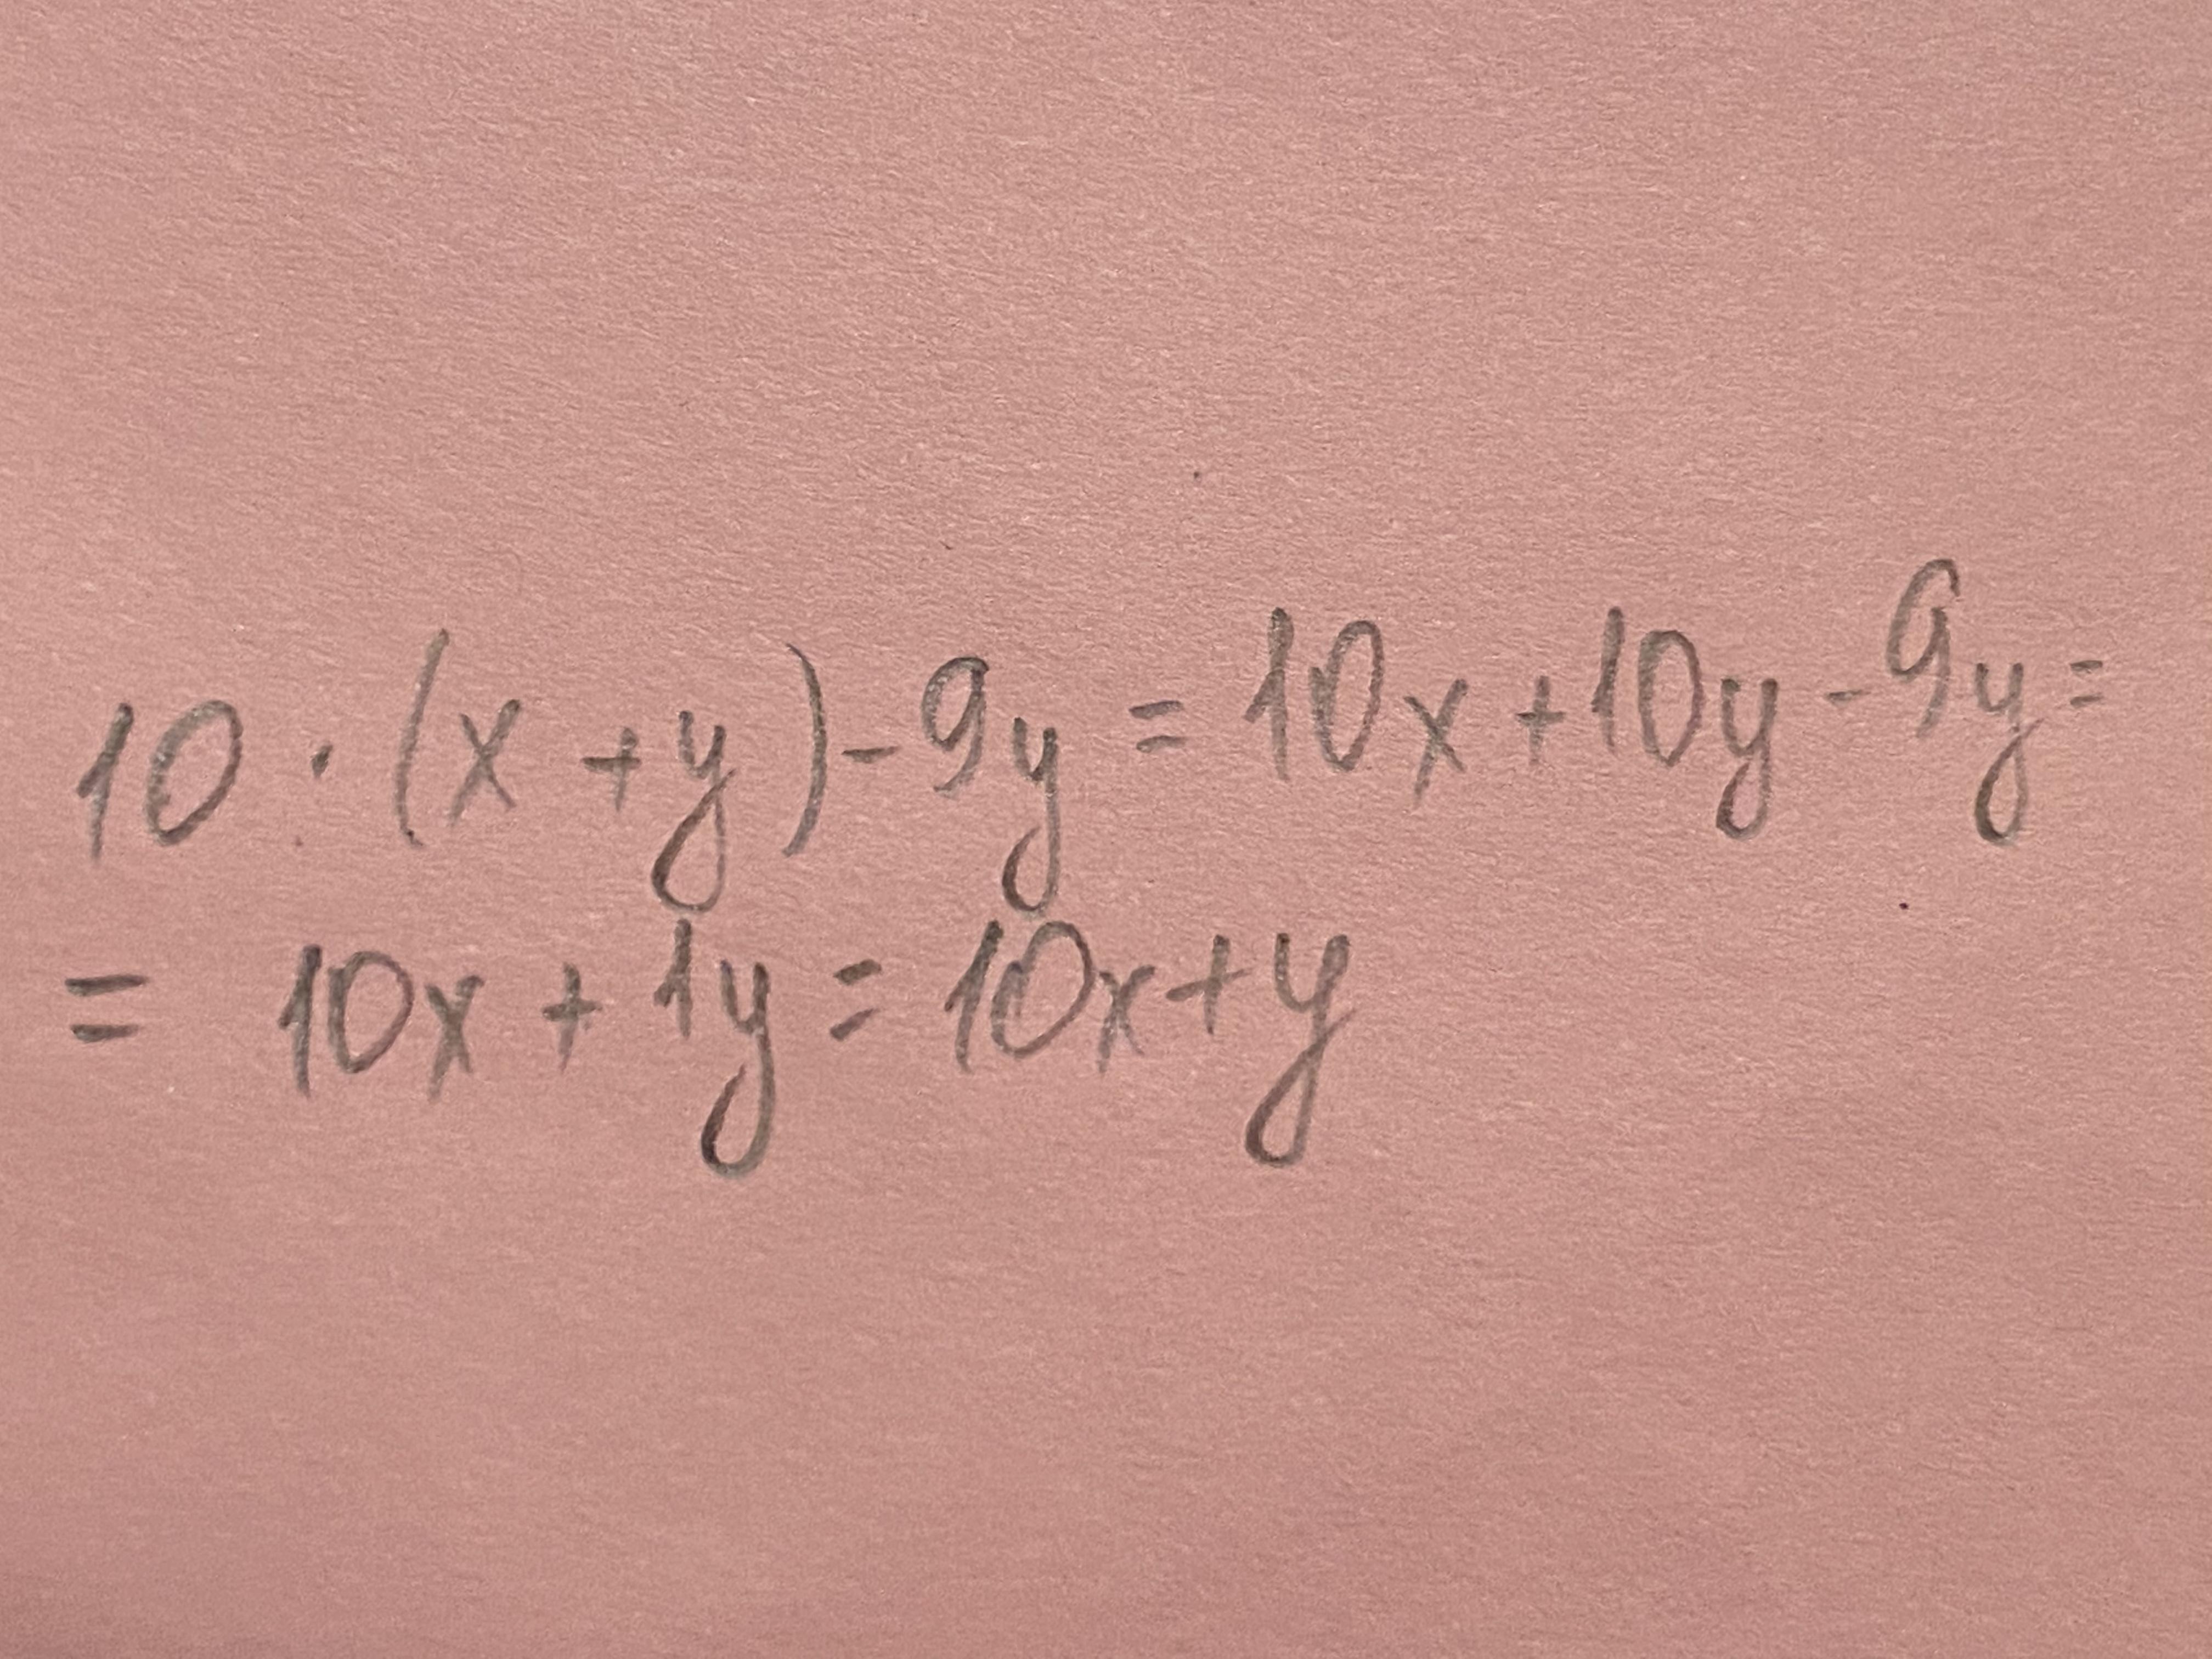 10 · (x + y) - 9y = 10x + 10y - 9y =
= 10x + 1y = 10x + y